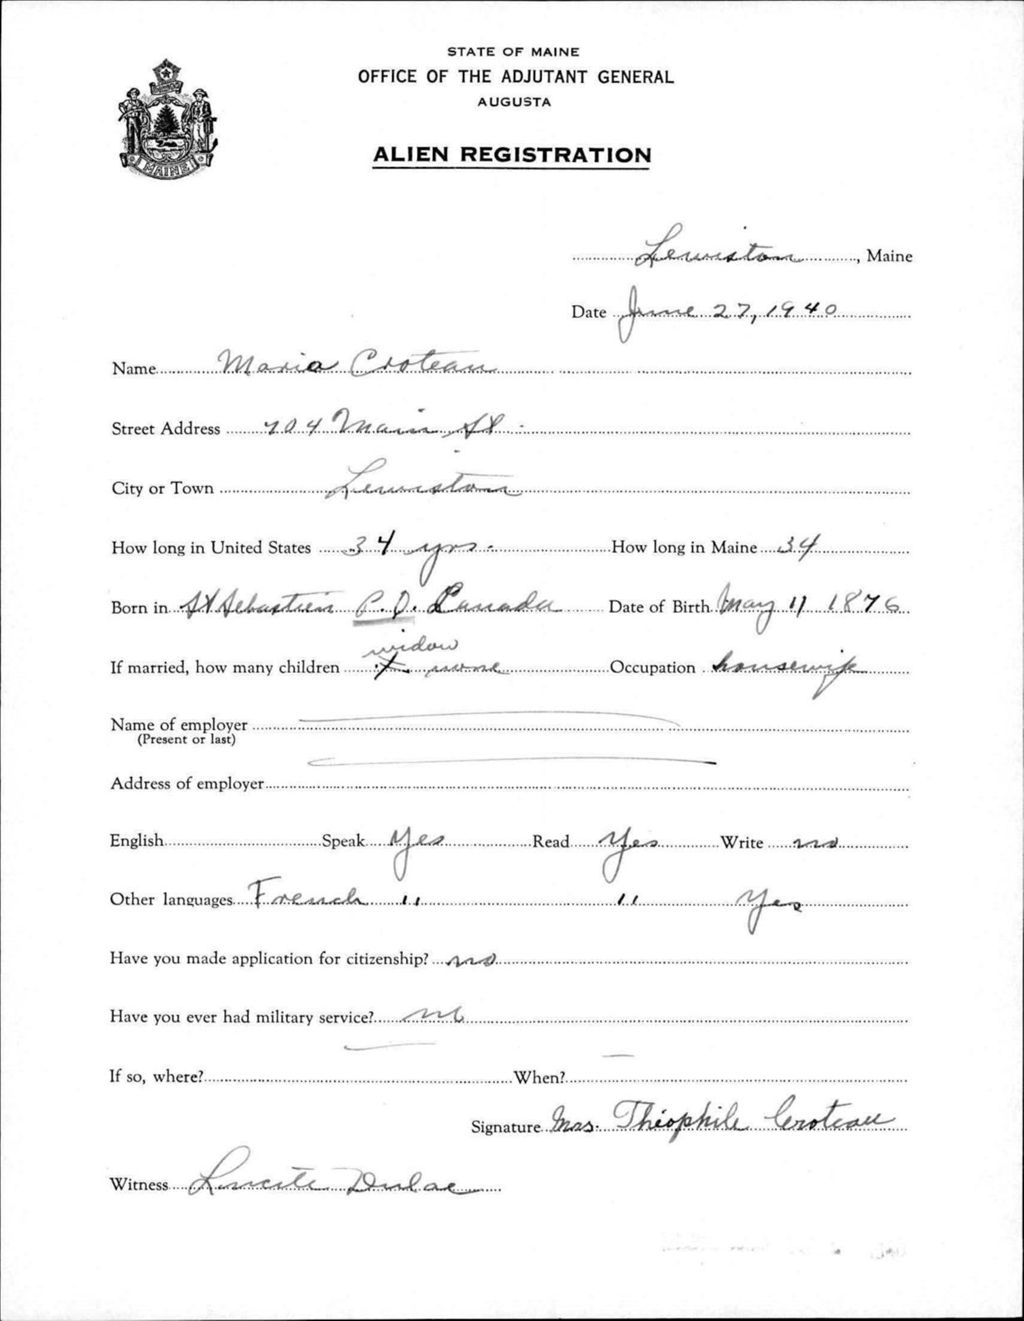 STATE OF MAINE
OFFICE OF THE ADJUTANT GENERAL
AUGUSTA
ALIEN REGISTRATION
MAINE
Lewiston, Maine
Date June 27, 1940
Name Maria Croteau
Street Address 704 Main St.
City or Town Lewiston
How long in United States 34 yrs. How long in Maine 34
Born in St Sebastien P.Q. Canada Date of Birth May 11 1876
widow
If married, how many children none Occupation housewife
Name of employer
(Present or last)
Address of employer
English Speak Yes Read Yes Write no
Other languages French " " Yes
Have you made application for citizenship? no
Have you ever had military service? no
If so, where? When?
Signature Mrs. Théophile Croteau
Witness Lucite Dulac